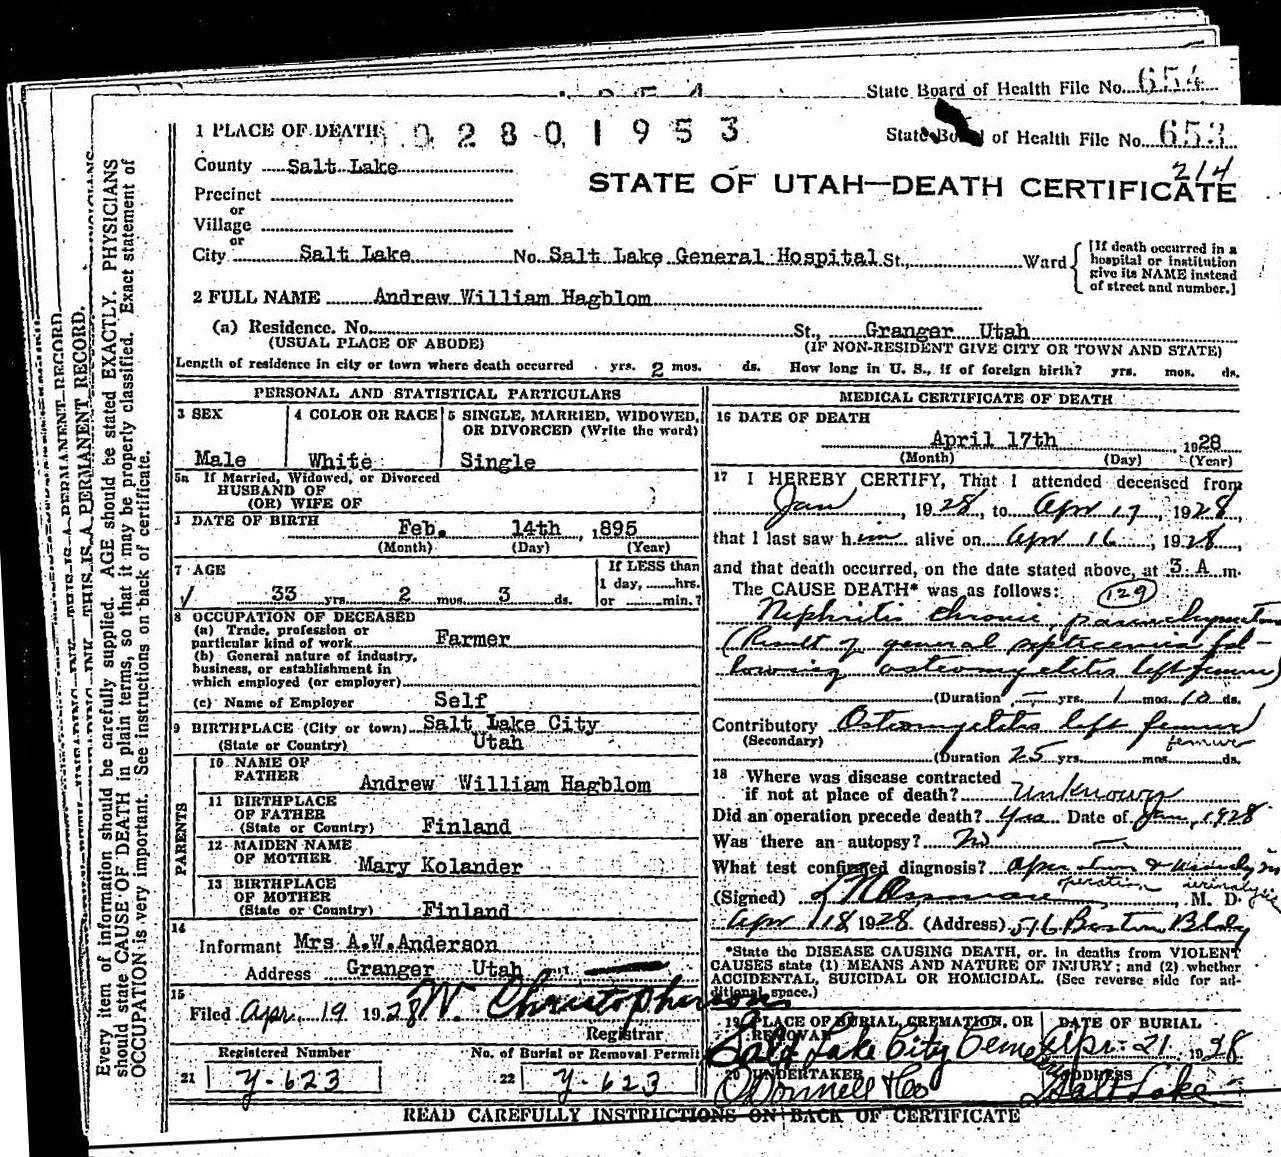 State Board of Health File No. 654
1 PLACE OF DEATH 02801953 State Board of Health File No. 653
214
County Salt Lake
STATE OF UTAH—DEATH CERTIFICATE
Precinct
or
Village
or
City Salt Lake No. Salt Lake General Hospital St., Ward
[If death occurred in a
hospital or institution
give its NAME instead
of street and number.]
2 FULL NAME Andrew William Hagblom
(a) Residence. No. St., Granger Utah
(USUAL PLACE OF ABODE) (IF NON-RESIDENT GIVE CITY OR TOWN AND STATE)
Length of residence in city or town where death occurred yrs. 2 mos. ds. How long in U. S., if of foreign birth? yrs. mos. ds.
PERSONAL AND STATISTICAL PARTICULARS
3 SEX
Male
4 COLOR OR RACE
White
5 SINGLE, MARRIED, WIDOWED,
OR DIVORCED (Write the word)
Single
5a If Married, Widowed, or Divorced
HUSBAND OF
(OR) WIFE OF
DATE OF BIRTH Feb. 14th , 895
(Month) (Day) (Year)
7 AGE
33 yrs. 2 mos. 3 ds.
If LESS than
1 day, hrs.
or min.?
8 OCCUPATION OF DECEASED
(a) Trade, profession or
particular kind of work Farmer
(b) General nature of industry,
business, or establishment in
which employed (or employer)
(c) Name of Employer Self
9 BIRTHPLACE (City or town) Salt Lake City
(State or Country) Utah
PARENTS
10 NAME OF
FATHER Andrew William Hagblom
11 BIRTHPLACE
OF FATHER
(State or Country) Finland
12 MAIDEN NAME
OF MOTHER Mary Kolander
13 BIRTHPLACE
OF MOTHER
(State or Country) Finland
14
Informant Mrs A.W.Anderson
Address Granger Utah
15
Filed Apr. 19 1928 W. Christopherson
Registrar
Registered Number No. of Burial or Removal Permit
21 Y-623 22 Y-623
MEDICAL CERTIFICATE OF DEATH
16 DATE OF DEATH
April 17th , 1928
(Month) (Day) (Year)
17 I HEREBY CERTIFY, That I attended deceased from
Jan , 1928, to Apr 17, 1928,
that I last saw him alive on Apr 16, 1928,
and that death occurred, on the date stated above, at 3 A m.
The CAUSE DEATH* was as follows: 129
Nephritis chronic, parenchymatous
(Result of general septicemia fol-
lowing osteomyelitis left femur)
(Duration — yrs. 1 mos. 10 ds.
Contributory Osteomyelitis left femur
(Secondary) femur
(Duration 25 yrs. mos. ds.
18 Where was disease contracted
if not at place of death? Unknown
Did an operation precede death? Yes Date of Jan, 1928
Was there an autopsy? No
What test confirmed diagnosis? Operation & urinalysis
operation urinalysis
(Signed) M. D.
Apr 18 1928 (Address) 516 Boston Bldg
*State the DISEASE CAUSING DEATH, or, in deaths from VIOLENT
CAUSES state (1) MEANS AND NATURE OF INJURY; and (2) whether
ACCIDENTAL, SUICIDAL OR HOMICIDAL. (See reverse side for ad-
ditional space.)
19 PLACE OF BURIAL, CREMATION, OR
REMOVAL
Salt Lake City Cemetery
DATE OF BURIAL
Apr. 21 1928
20 UNDERTAKER
O'Donnell & Co
ADDRESS
Salt Lake
READ CAREFULLY INSTRUCTIONS ON BACK OF CERTIFICATE
THIS IS A PERMANENT RECORD.
THIS IS A PERMANENT RECORD.
Every item of information should be carefully supplied. AGE should be stated EXACTLY. PHYSICIANS
should state CAUSE OF DEATH in plain terms, so that it may be properly classified. Exact statement of
OCCUPATION is very important. See instructions on back of certificate.